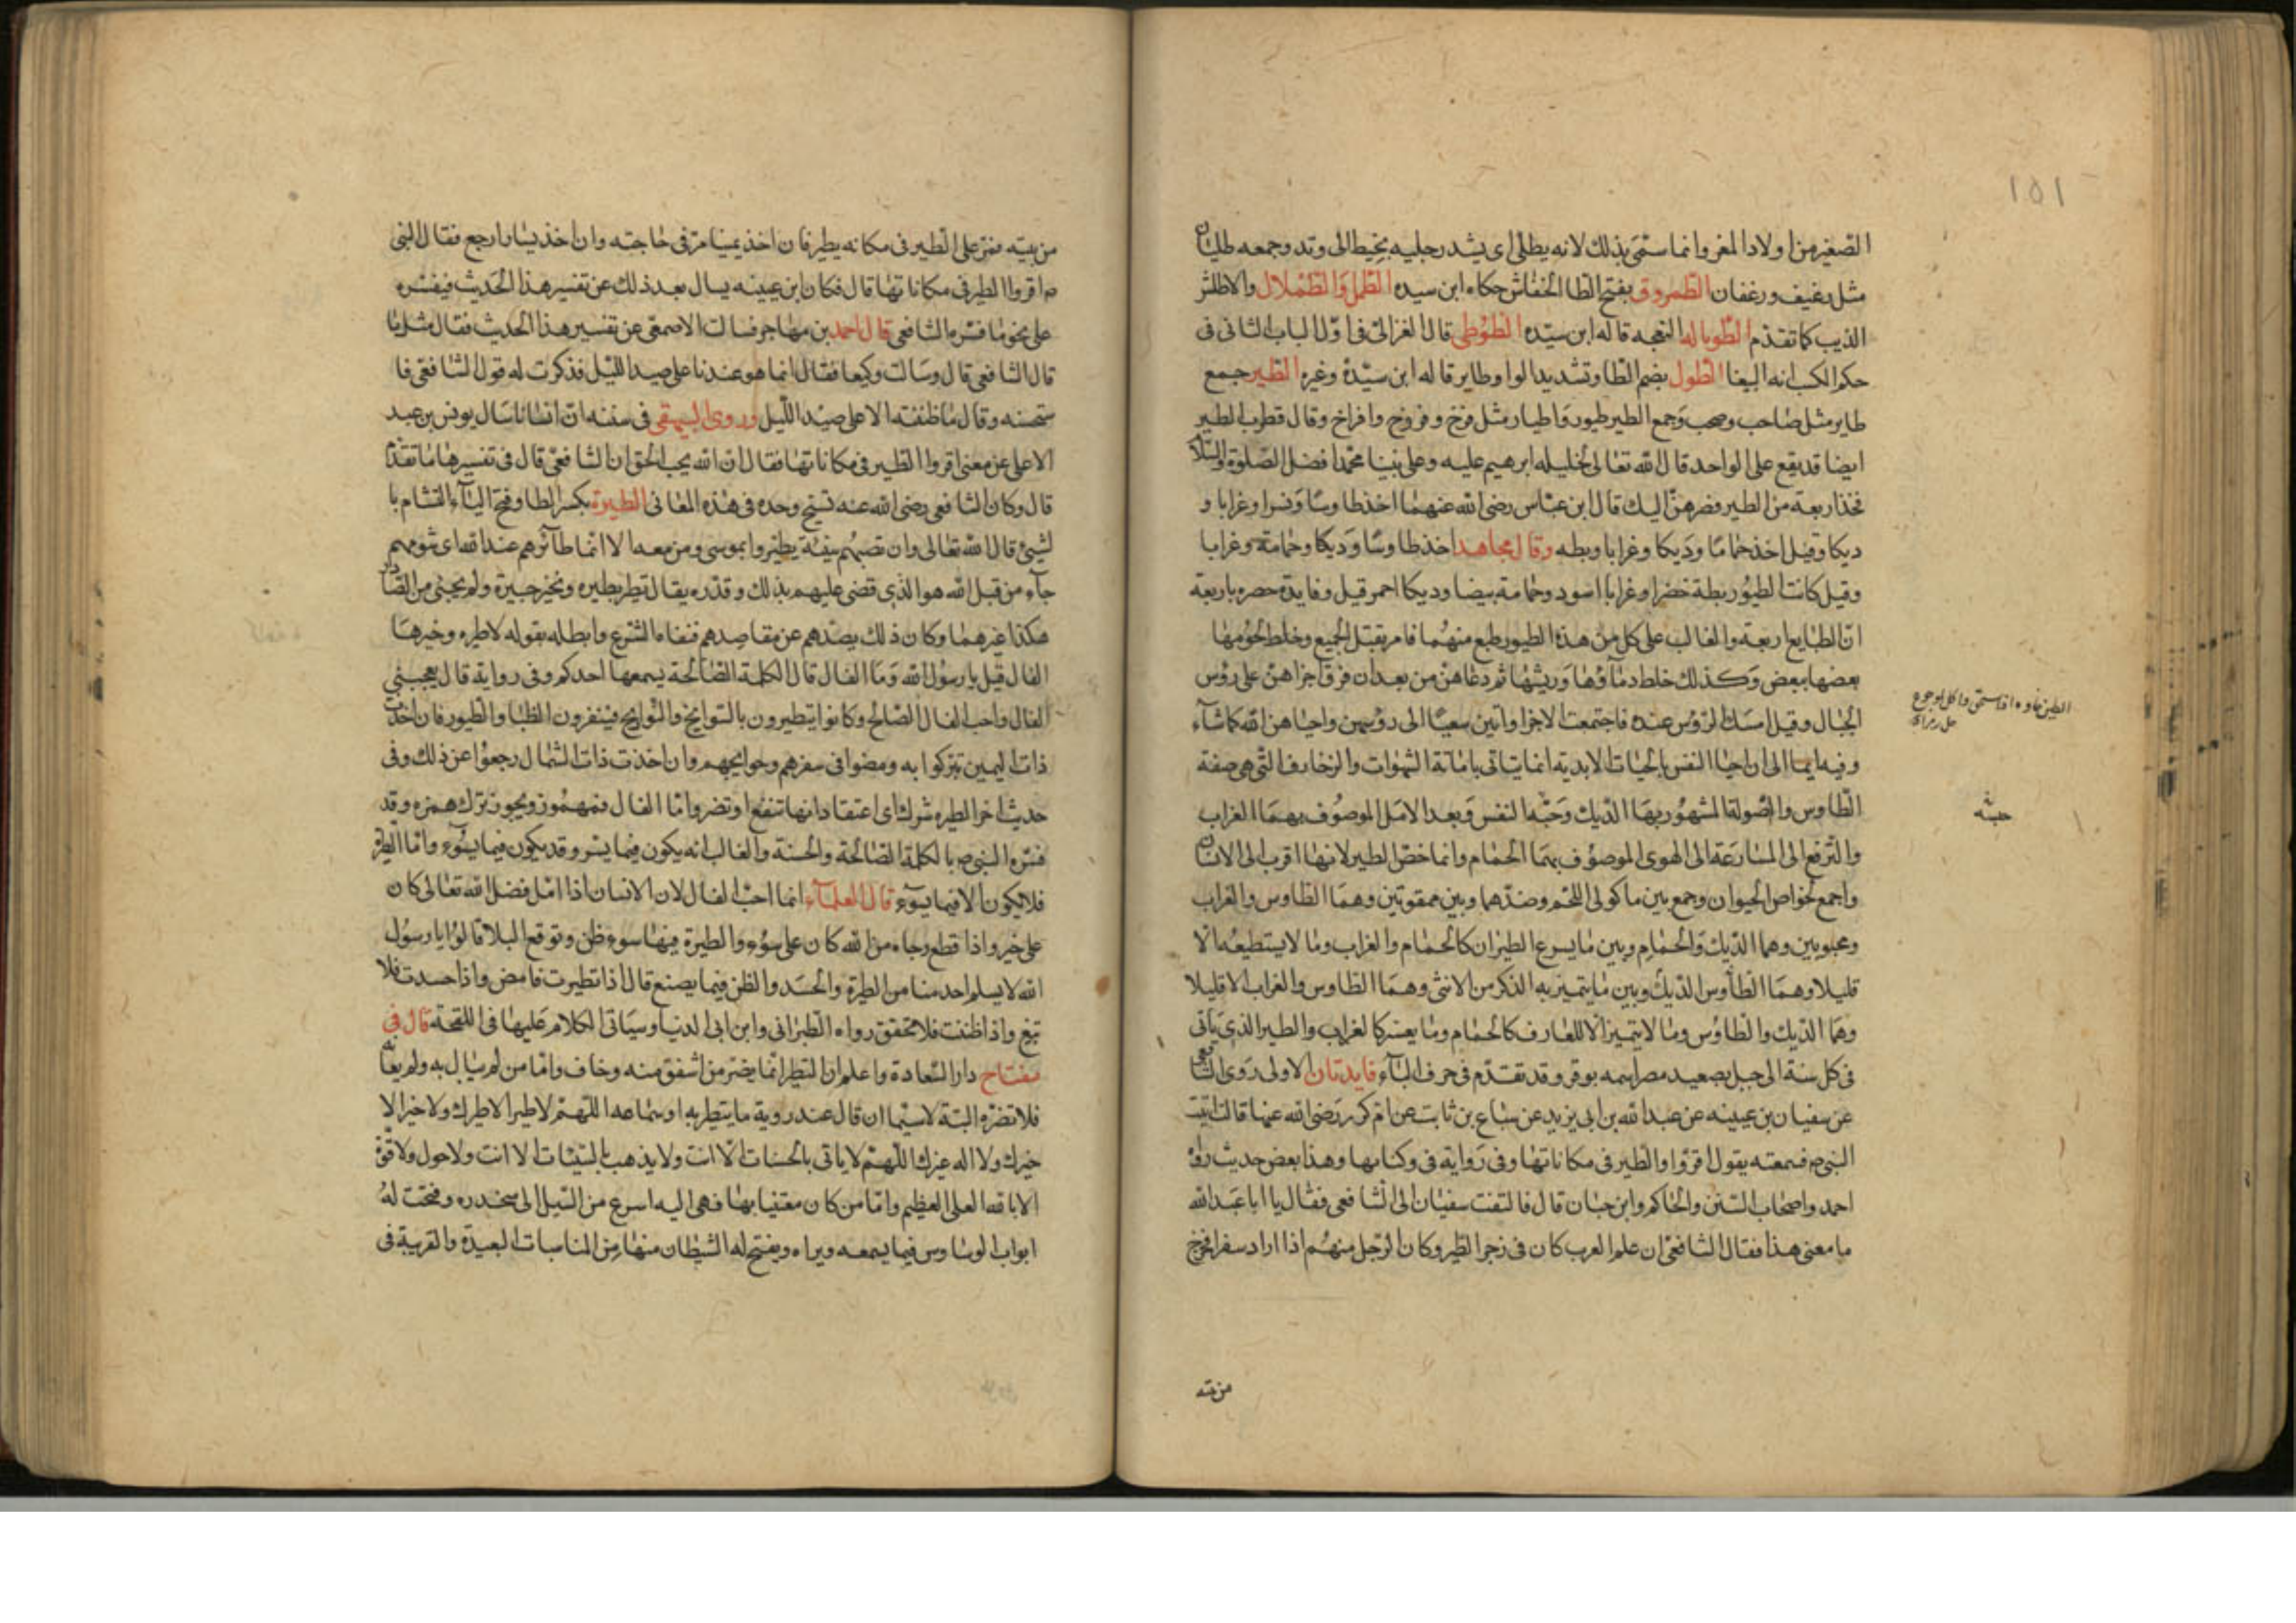 ١٥١
الصغير من اولاد المغر وانما سمى بذلك لانه يطلى اى يشد رجليه بخيط الى وتد وجمعه طليان
مثل رغيف ورغفان الطمروق بفتح الطا الخفاش حكاه ابن سيده الطمل والطملال والاطلس
الذيب كما تقدم الطوباله النعجه قاله ابن سيده الطوطى قال الغزالى فى اول الباب الثانى فى
حكم الكسب انه الببغا الطول بضم الطا وتشديد الواو طاير قاله ابن سيدة وغيره الطير جمع
طاير مثل صاحب وصحب وجمع الطير طيور واطيار مثل فرخ وفروخ وافراخ وقال قطرب الطير
ايضا قد يقع على الواحد قال الله تعالى لخليله ابرهيم عليه وعلى نبينا محمد افضل الصلوة والسلام
فخذ اربعة من الطير فصرهن اليك قال ابن عباس رضى الله عنهما اخذ طاوسا ونسرا وغرابا و
ديكا وقيل اخذ حماما وديكا وغرابا وبطه وقال مجاهد اخذ طاوسا وديكا وحمامة وغرابا
وقيل كانت الطيور بطة خضرا وغرابا اسود وحمامة بيضا وديكا احمر قيل وفايدة حصره باربعة
ان الطبايع اربعة والغالب على كل من هذه الطيور طبع منهما فامر بقتل الجميع وخلط لحومها
بعضها ببعض وكذلك خلط دماؤها وريشها ثم دعاهن من بعد ان فرق اجزاهن على رؤس
الجبال وقيل امسك الرؤس عنده فاجتمعت الاجزا واتين سعيا الى رؤسهن واحياهن الله كما شآء
وفيه ايما الى ان احيا النفس بالحيات الابدية انما يتاتى باماتة الشهوات والزخارف التى هى صفة
الطاوس والصولة المشهور بها الديك وحبه النفس وبعد الامل الموصوف بهما الغراب
والترفع الى المسارعة الى الهوى الموصوف بهما الحمام وانما خص الطير لانها اقرب الى الانسان
واجمع لخواص الحيوان وجمع بين ماكولى اللحم وضدهما وبين ممقوتين وهما الطاوس والغراب
ومحبوبين وهما الديك والحمام وبين ما يسرع الطيران كالحمام والغراب وما لا يستطيعه الا
قليلا وهما الطاوس الديك وبين ما يتميز به الذكر من الانثى وهما الطاوس والغراب الا قليلا
وهما الديك والطاوس وما لا يتميز الا للعارف كالحمام وما يعسر كالغراب والطير الذى ياتى
فى كل سنة الى جبل بصعيد مصر اسمه بوقير وقد تقدم فى حرف البآء فايدتان الاولى روى الشافعى
عن سفيان بن عيينه عن عبد الله بن ابى يزيد عن سباع بن ثابت عن ام كرز رضى الله عنها قالت اتيت
النبى ص فسمعته يقول اقروا الطير فى مكاناتها وفى رواية فى وكناتها وهذا بعض حديث رواه
احمد واصحاب السنن والحاكم وابن حبان قال فالتفت سفيان الى الشافعى فقال يا ابا عبد الله
ما معنى هذا فقال الشافعى ان علم العرب كان فى زجر الطير وكان الرجل منهم اذا اراد سفرا خرج
حبه
من بيته
من بيته فمر على الطير فى مكانه يطير فان اخذ يمينا مر فى حاجته وان اخذ يسارا رجع فقال النبى
ص اقروا الطير فى مكاناتها قال فكان ابن عيينه يسال بعد ذلك عن تفسير هذا الحديث فيفسره
على نحو ما فسره الشافعى قال احمد بن مهاجر فسالت الاصمعى عن تفسير هذا الحديث فقال مثل ما
قال الشافعى قال وسالت وكيعا فقال انما هو عندنا على صيد الليل فذكرت له قول الشافعى فا
ستحسنه وقال ما ظننته الا على صيد الليل وروى البيهقى فى سننه ان انسانا سال يونس بن عبد
الاعلى عن معنى اقروا الطير فى مكاناتها فقال ان الله يحب الحق ان الشافعى قال فى تفسيرها ما تقدم
قال وكان الشافعى رضى الله عنه نسيج وحده فى هذه المعانى الطيرة بكسر الطا وفتح اليآء التشام با
لشيئ قال الله تعالى وان تصبهم سيئة يطيروا بموسى ومن معه الا انما طآئرهم عند الله اى شومهم
جآء من قبل الله هو الذى قضى عليهم بذلك وقدره يقال تطير بطيره وتخير خيرة ولم يجئ من المصادر
هكذا غيرهما وكان ذلك يصدهم عن مقاصدهم فنفاه الشرع وابطله بقوله لا طيره وخيرها
الفال قيل يا رسول الله وما الفال قال الكلمة الصالحة يسمعها احدكم وفى رواية قال يعجبنى
الفال واحب الفال الصالح وكانوا يتطيرون بالسوانح والبوارح فينفرون الظبا والطيور فان اخذت
ذات اليمين تبركوا به ومضوا فى سفرهم وحوايجهم وان اخذت ذات الشمال رجعوا عن ذلك وفى
حديث اخر الطيره شرك اى اعتقاد انها تنفع او تضر واما الفال فمهموز ويجوز ترك همزه وقد
فسره النبى ص بالكلمة الصالحة والحسنة والغالب انه يكون فيما يسر وقد يكون فيما يسوء واما الطيرة
فلا يكون الا فيما يسوء قال العلمآء انما احب الفال لان الانسان اذا امل فضل الله تعالى كان
على خير واذا قطع رجاه من الله كان على سوء والطيرة فيها سوء ظن وتوقع البلا قالوا يا رسول
الله لا يسلم احد منا من الطيرة والحسد والظن فيما يصنع قال اذا تطيرت فامض واذا حسدت فلا
تبغ واذا ظننت فلا تحقق رواه الطبرانى وابن ابى الدنيا وسياتى الكلام عليها فى اللقحة قال فى
مفتاح دار السعادة واعلم ان التطير انما يضر من اشفق منه وخاف واما من لم يبال به ولم يعبا به
فلا تضره البتة لا سيما ان قال عند روية ما يتطير به او سماعه اللهم لا طير الا طيرك ولا خير الا
خيرك ولا اله غيرك اللهم لا ياتى بالحسنات الا انت ولا يذهب بالسيئات الا انت ولا حول ولا قوة
الا بالله العلى العظيم واما من كان معتنيا بها فهى اليه اسرع من السيل الى منحدره وفتحت له
ابواب الوساوس فيما يسمعه ويراه ويفتح له الشيطان منها من المناسبات البعيدة والقريبة فى